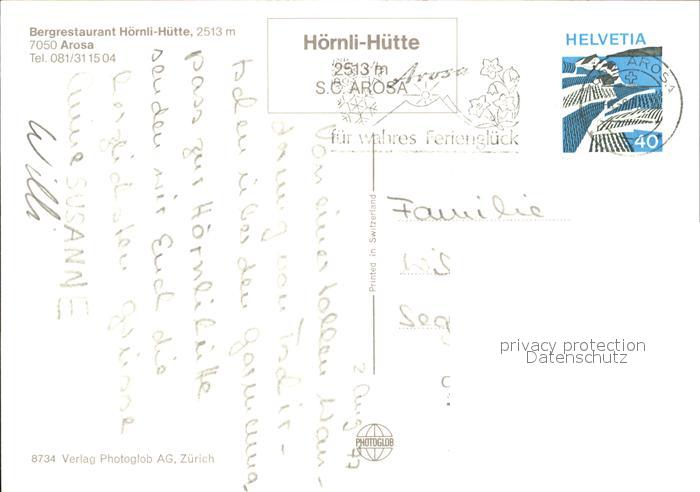 Bergrestaurant Hörnli-Hütte, 2513 m
7050 Arosa
Tel. 081/311504
Hörnli-Hütte
2513 m
S.C. AROSA
Arosa
für wahres Ferienglück
HELVETIA
AROSA
40
2 Aug. 77
Von einer tollen Wan-
derung von Tschir-
tschen über den
pass zur Hörnlihütte
senden wir Euch die
herzlichsten Grüsse
SUSANNE
Willi
Printed in Switzerland
Familie
privacy protection
Datenschutz
PHOTOGLOB
8734 Verlag Photoglob AG, Zürich